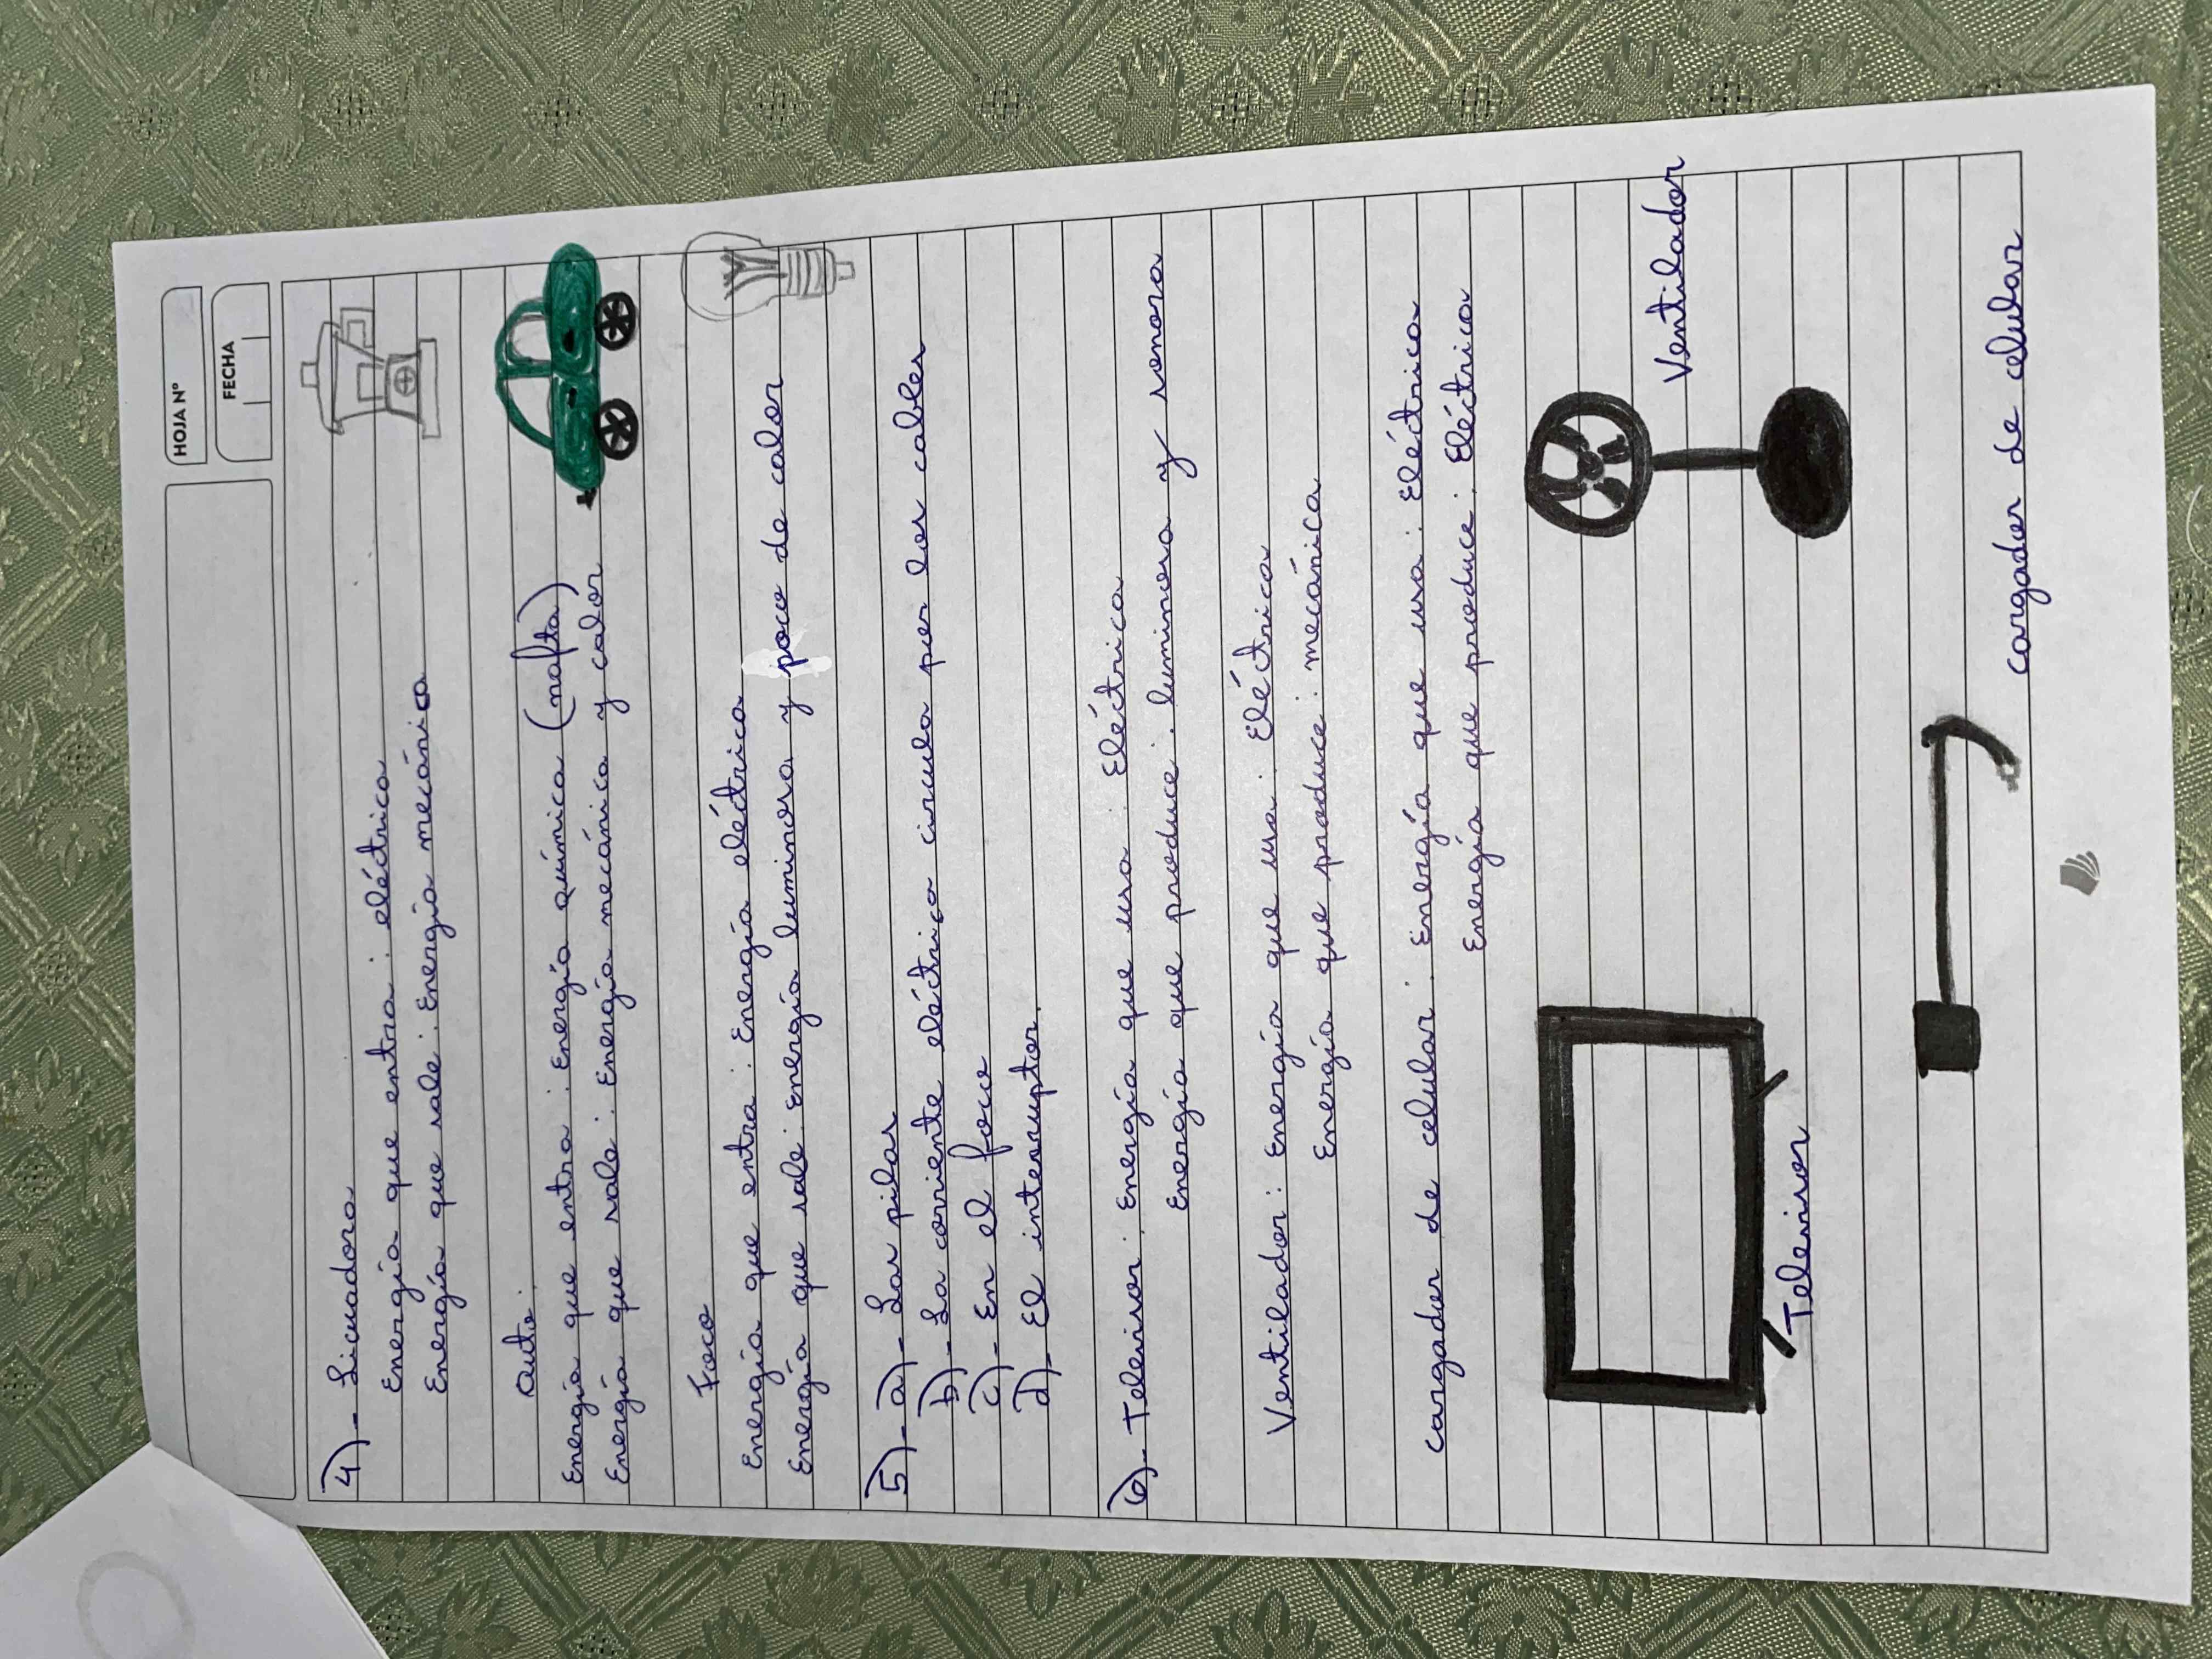 HOJA Nº
FECHA
4)- Licuadora
Energía que entra: eléctrica
Energía que sale: Energía mecánica
auto:
Energía que entra: Energía química (nafta)
Energía que sale: Energía mecánica y calor
Foco
Energía que entra: Energía eléctrica
Energía que sale: Energía luminosa y poco de calor
5)- a)- Las pilas
b)- La corriente eléctrica circula por los cables
c)- En el foco
d)- El interruptor.
6)- Televisor: Energía que usa: Eléctrica
Energía que produce: luminosa y sonora
Ventilador: Energía que usa: Eléctrica
Energía que produce: mecánica
cargador de celular: Energía que usa: Eléctrica
Energía que produce: Eléctrica
Ventilador
Televisor
cargador de celular